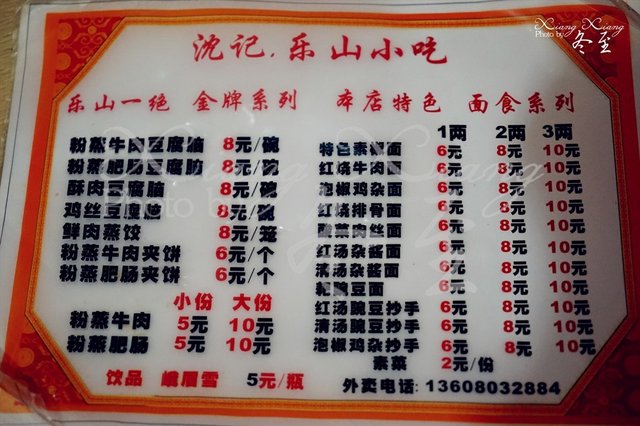 Xiang Xiang
Photo by 冬至
沈记.乐山小吃
乐山一绝 金牌系列
粉蒸牛肉豆腐脑 8元/碗
粉蒸肥肠豆腐脑 8元/碗
酥肉豆腐脑 8元/碗
鸡丝豆腐脑 8元/碗
鲜肉蒸饺 8元/笼
粉蒸牛肉夹饼 6元/个
粉蒸肥肠夹饼 6元/个
小份 大份
粉蒸牛肉 5元 10元
粉蒸肥肠 5元 10元
饮品 峨眉雪 5元/瓶
本店特色 面食系列
1两 2两 3两
特色素椒面 6元 8元 10元
红烧牛肉面 6元 8元 10元
泡椒鸡杂面 6元 8元 10元
红烧排骨面 6元 8元 10元
酸菜肉丝面 6元 8元 10元
红汤杂酱面 6元 8元 10元
清汤杂酱面 6元 8元 10元
豌豆面 6元 8元 10元
红汤豌豆抄手 6元 8元 10元
清汤豌豆抄手 6元 8元 10元
泡椒鸡杂抄手 6元 8元 10元
素菜 2元/份
外卖电话: 13608032884
Xiang Xiang
Photo by 冬至